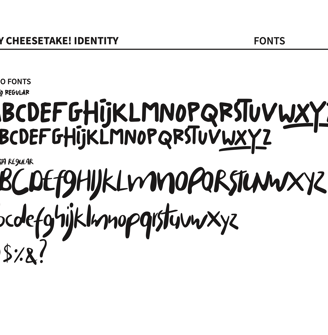 Y CHEESETAKE! IDENTITY
FONTS
O FONTS
REGULAR
BCDEFGHIJKLMNOPQRSTUVWXYZ
BCDEFGHIJKLMNOPQRSTUVWXYZ
REGULAR
BCDEFGHIJKLMNOPQRSTUVWXYZ
bcdefghijklmnopqrstuvwxyz
$%&?